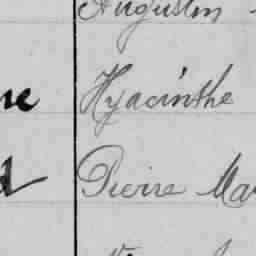 Augustin
Hyacinthe
Pierre Mar